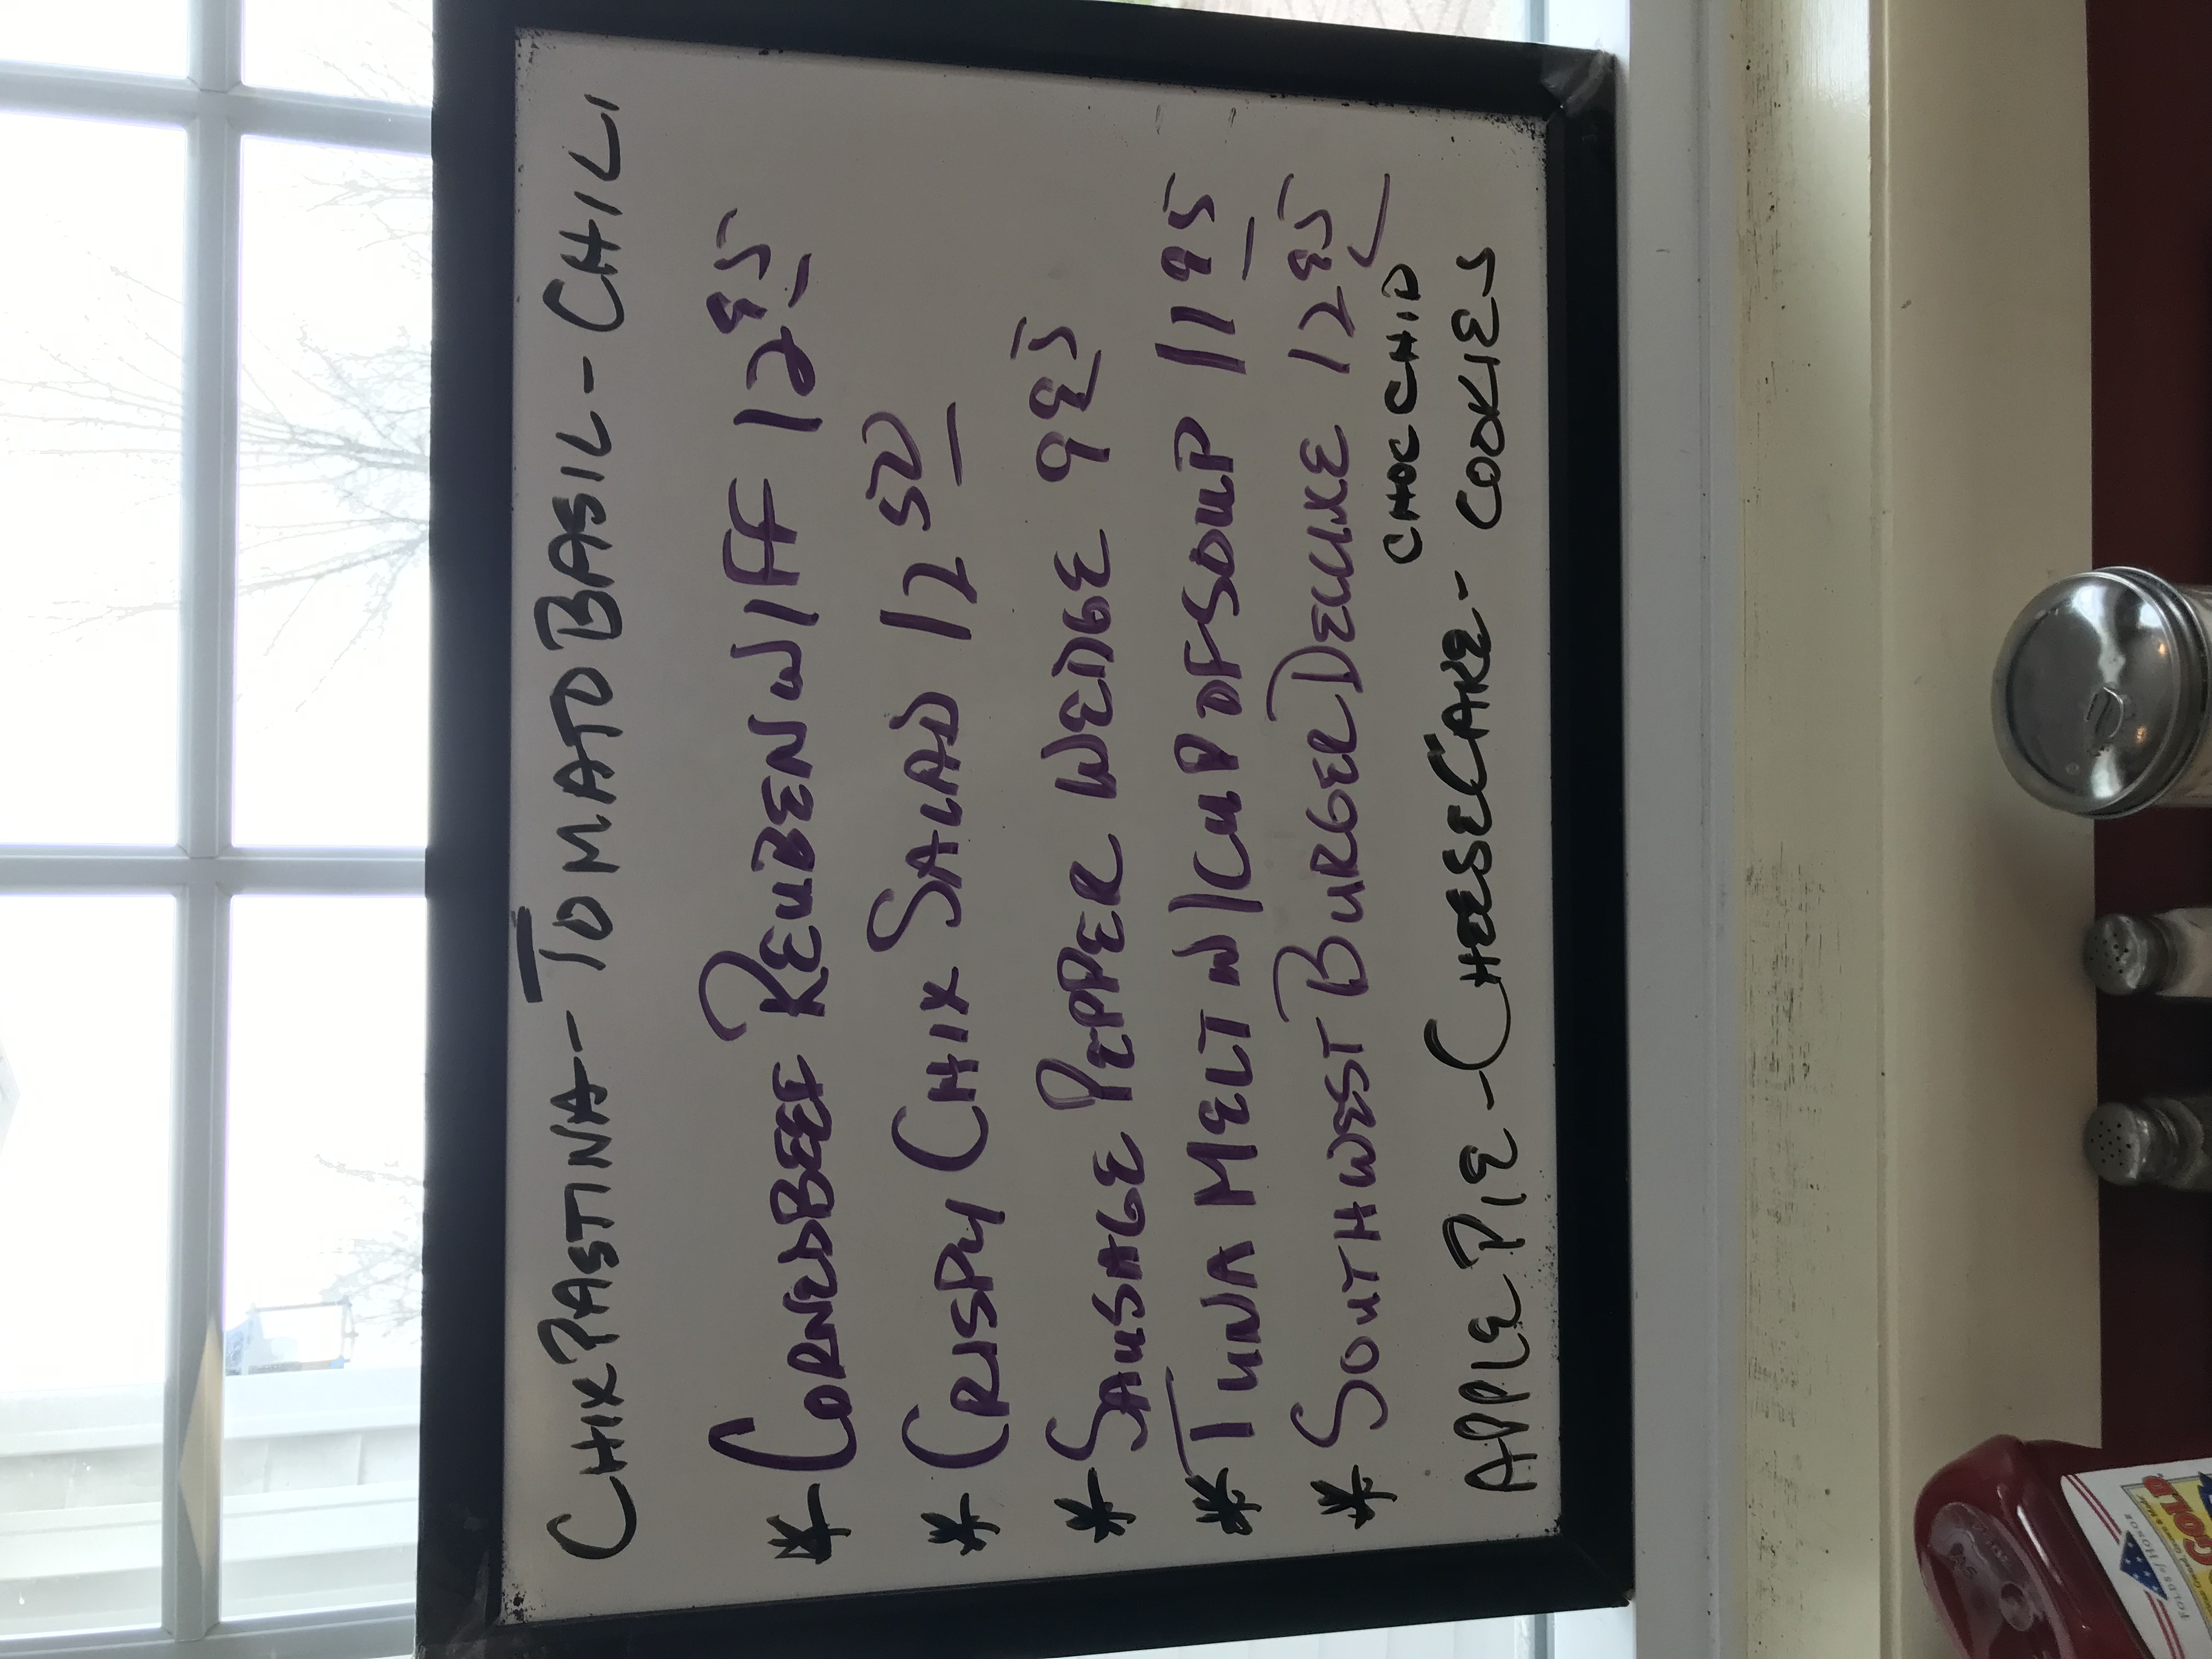 CHIX PASTINA - TOMATO BASIL - CHILI
* CORNDBEEF REUBEN W/FF 12 95
* CRISPY CHIX SALAD 12 50
* SAUSAGE PEPPER WEDGE 9 95
* TUNA MELT W/CUP OF SOUP 11 95
* SOUTHWEST BURGER DELUXE 12 95
APPLE PIE - CHEESECAKE - CHOC CHIP
COOKIES
GOLD
FOLDS of HONOR